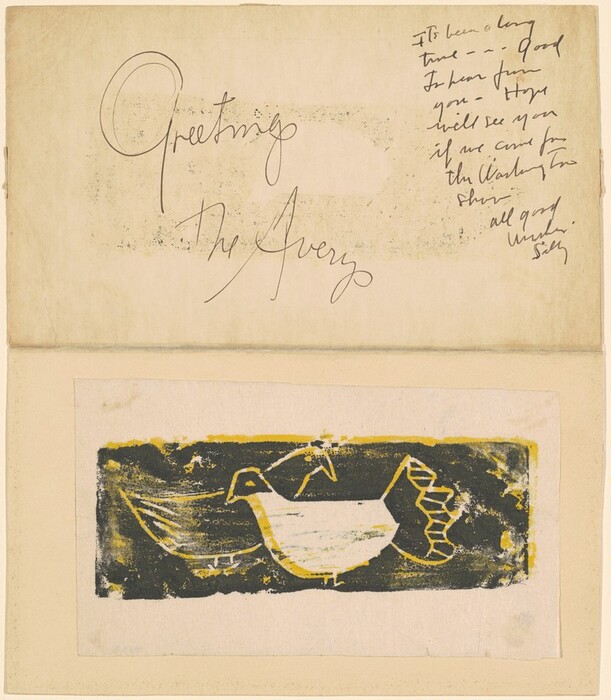 Greetings
The Averys
Its been a long
time - - - Good
To hear from
you - Hope
we'll see you
if we come for
the Washington
show
all good
wishes